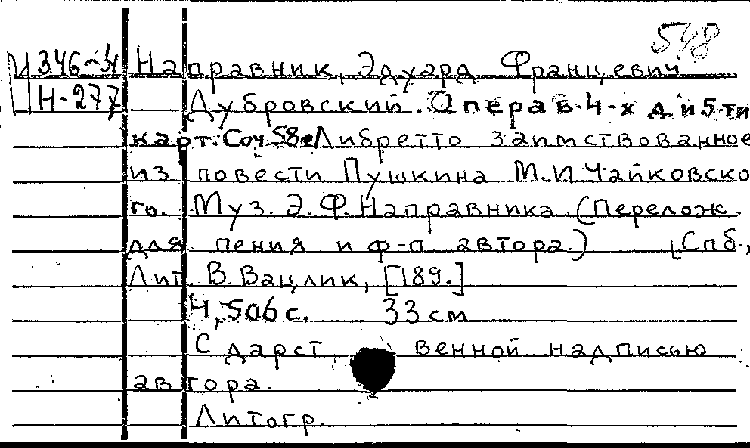 548
Ц 346-34 Направник, Эдуард Францевич
Н-277 Дубровский. Опера в 4-х д. и 5-ти
карт. Соч 58. Либретто заимствованное
из повести Пушкина М.И Чайковско
го. Муз. Э.Ф. Направника. (Перелож.
для пения и ф-п автора.) [Спб.,
Лит. В. Вацлик, [189.]
4, 506 с. 33 см
С дарст венной надписью
автора.
Литогр.